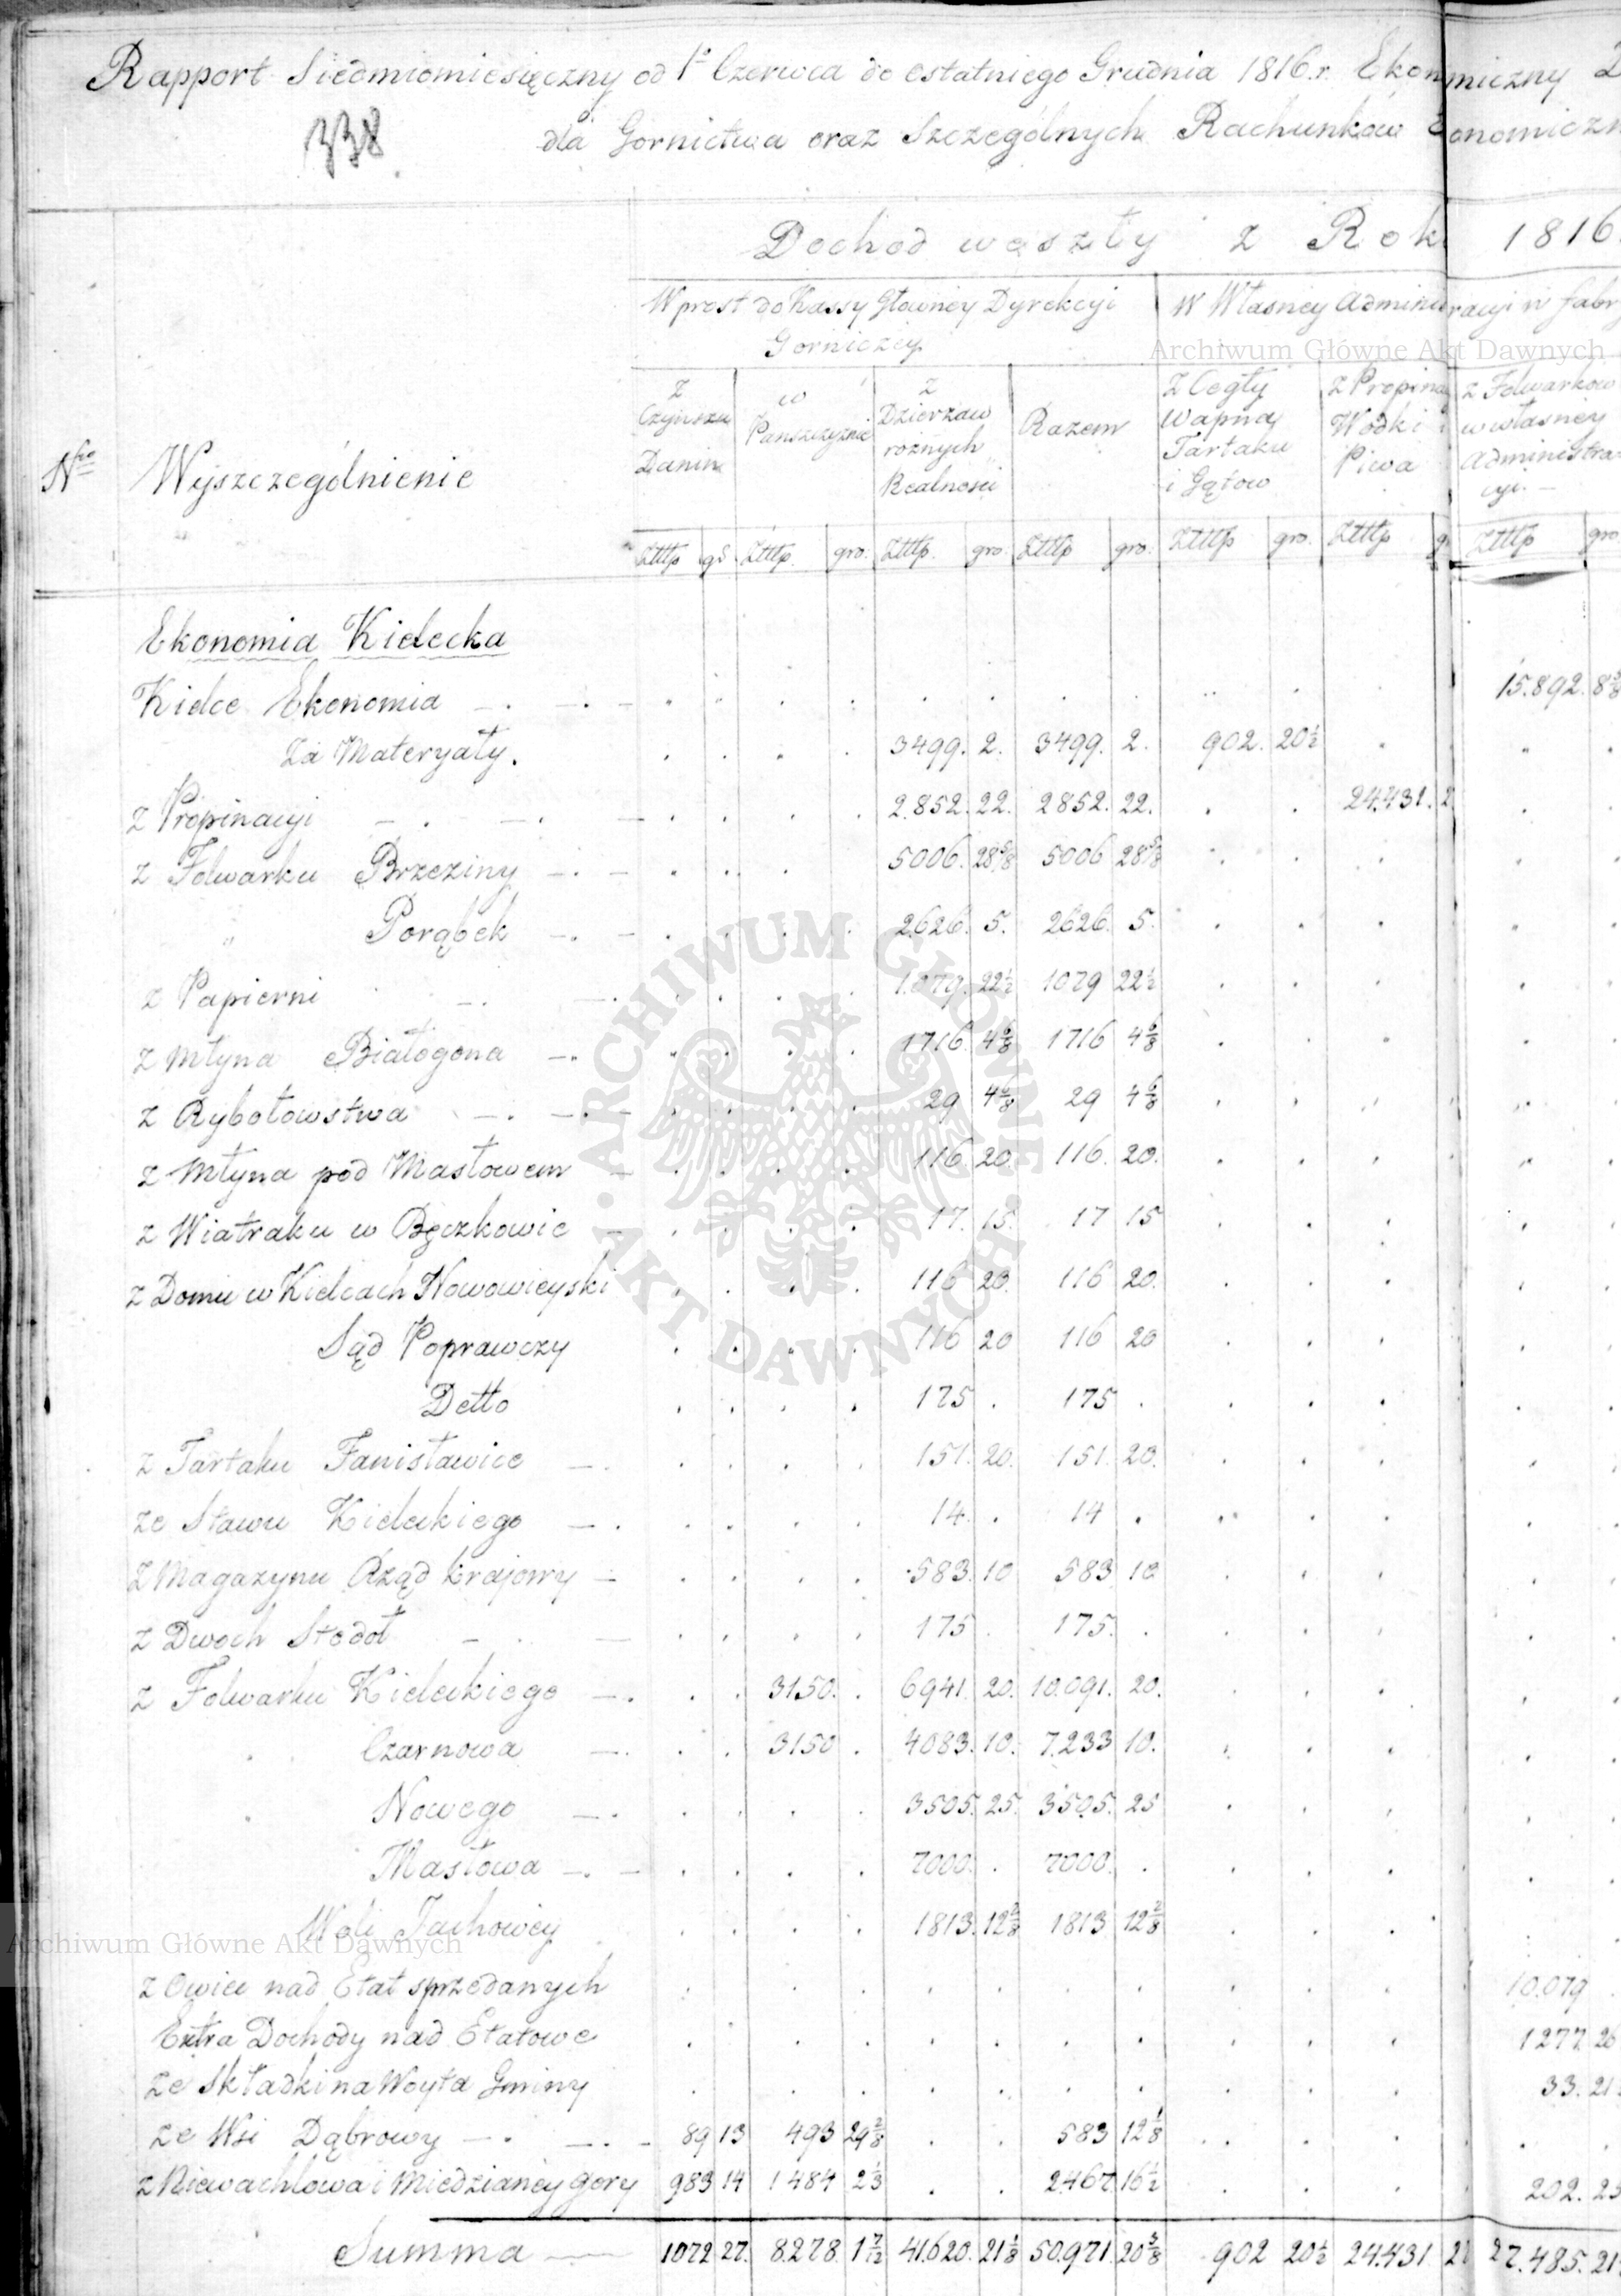 Rapport Siedmiomiesięczny od 1° Czerwca do ostatniego Grudnia 1816.r. Ekonomiczny
338
dla Gornictwa oraz Szczególnych Rachunków
Dochod weszły z Rok 1816
Wprost do Kassy Głowney Dyrekcyi
Gorniczey
W Własney Adminis racyi w fabr
Archiwum Główne Akt Dawnych
Nro
Wyszczególnienie
z Czynszu Danin
w Panszczyznie
z Dzierzaw roznych Realnosci
Razem
z Cegły Wapna Tartaku i Gątow
z Propina Wodki i Piwa
z Folwarkow w własney Administra cyi
Ztttp gr Ztttp gro. Ztttp. gro Ztttp gro. Ztttp gro. Ztttp g Ztttp gro
Ekonomia Kielecka
Kielce Ekonomia 15.892. 8
za Materyały. 3499. 2. 3499. 2. 902. 20½
z Propinacyi 2.852. 22. 2852. 22. 24.431. 2
z Folwarku Brzeziny 5006. 28⅝ 5006 28⅝
" Porąbek 2626. 5. 2626. 5.
z Papierni 1.079. 22½ 1079 22½
z Młyna Białogona 1716 4 6/8 1716 4 6/8
z Rybołowstwa 29 4 6/8 29 4 6/8
z Młyna pod Masłowem 116 20. 116. 20.
z Wiatraku w Bęczkowie 17. 15. 17 15
z Domu w Kielcach Nowowieyski 116 20. 116 20.
Sąd Poprawczy 116 20 116 20
Detto 175 . 175 .
z Tartaku Janisławice 151. 20. 151. 20.
ze Stawu Kieleckiego 14. . 14 .
z Magazynu Rząd Krajowy 583. 10 583 10
z Dwoch Stodoł 175 175. .
z Folwarku Kieleckiego 3150. . 6941. 20. 10.091. 20.
Czarnowa 3150 . 4083. 10. 7.233 10.
Nowego 3505. 25. 3505. 25
Masłowa 7000. . 7000. .
Woli Jachowey 1813. 12 2/8 1813 12 2/8
Archiwum Główne Akt Dawnych
z Owiec nad Etat sprzedanych 10.079
Extra Dochody nad Etatowe 1277. 26
ze Składki na Woyta Gminy 33. 21
ze Wsi Dąbrowy 89 13 493 29 2/8 583 12⅛
z Niewachlowa i Miedzianey gory 983 14 1484 2⅓ 2467. 16½ 202. 25
Summa 1072 27. 8.278. 1 7/12 41.620. 21⅛ 50.971. 20⅝ 902 20½ 24.431. 2 27.485. 21
ARCHIWUM GŁÓWNE • AKT DAWNYCH •